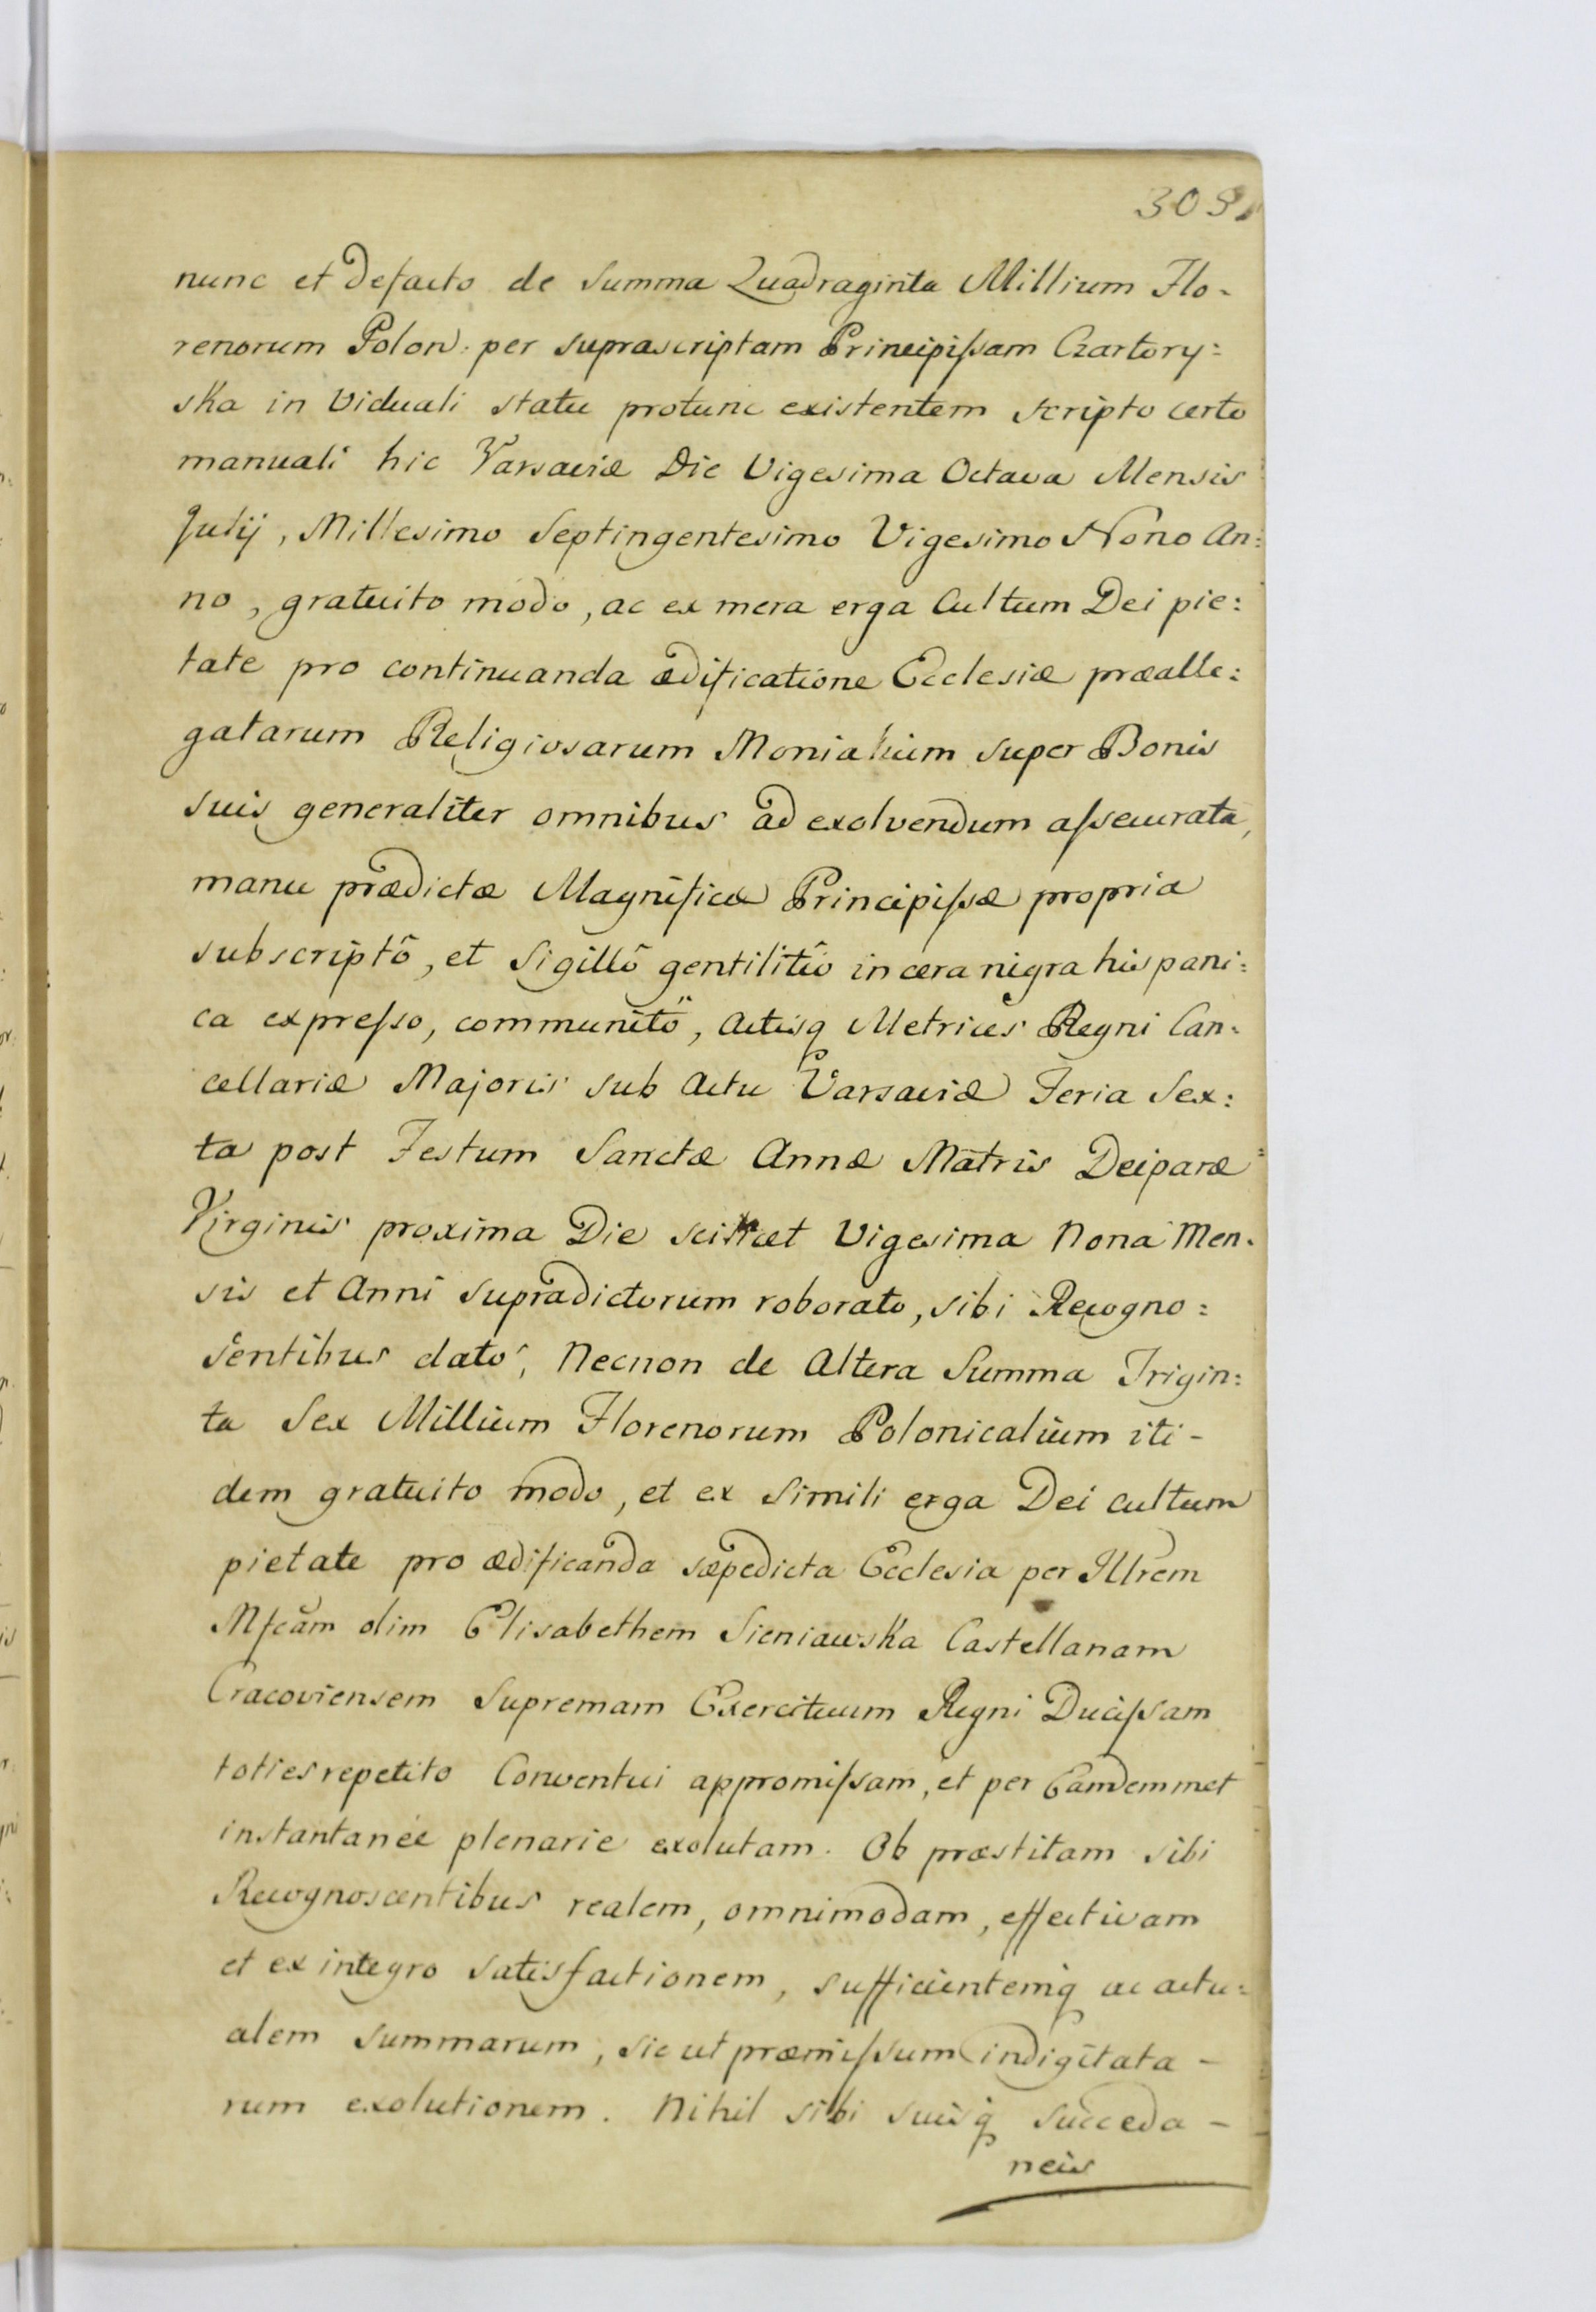 309
nunc et defacto de Summa Quadraginta Millium Flo-
renorum Polon. per suprascriptam Principissam Czartory:
ska in Viduali statu protunc existentem scripto certo
manuali hic Varsaviæ Die Vigesima Octava Mensis
Julij, Millesimo Septingentesimo Vigesimo Nono An:
no, gratuito modo, ac ex mera erga Cultum Dei pie:
tate pro continuanda ædificatione Ecclesiæ præalle:
gatarum Religiosarum Monialium super Bonis
suis generaliter omnibus ad exolvendum assecurata,
manu prædictæ Magnificæ Principissæ propria
subscriptô, et Sigillô gentilitiô in cera nigra hispani:
ca expresso, communitô, Actisq Metrices Regni Can:
cellariæ Majoris sub Actu Varsaviæ Feria Sex:
ta post Festum Sanctæ Annæ Matris Deiparæ
Virginis proxima Die scilicet Vigesima Nona Men.
sis et Anni supradictorum roborato, sibi Recogno:
sentibus dato, Necnon de Altera Summa Trigin:
ta Sex Millium Florenorum Polonicalium iti-
dem gratuito modo, et ex simili erga Dei cultum
pietate pro ædificanda sæpedicta Ecclesia per Illrem
Mfcam olim Elisabethem Sieniawska Castellanam
Cracoviensem Supremam Exercituum Regni Ducissam
toties repetito Conventui appromissam, et per Eamdemmet
instantanée plenarie exolutam. Ob præstitam sibi
Recognoscentibus realem, omnimodam, effectivam
et ex integro satisfactionem, sufficientemq ac actu:
alem summarum, sic ut præmissum indigitata-
rum exolutionem. Nihil sibi suisq succeda-
neis